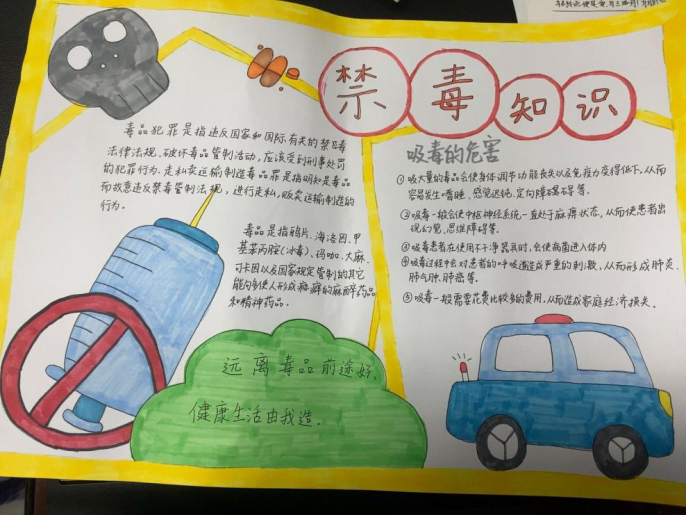 禁毒知识
毒品犯罪是指违反国家和国际有关的禁毒
法律法规、破坏毒品管制活动,应该受到刑事处罚
的犯罪行为。走私贩卖运输制造毒品罪是指明知是毒品
而故意违反禁毒管制法规,进行走私,贩卖运输制造的
行为。
毒品是指鸦片、海洛因、甲
基苯丙胺(冰毒)、吗啡、大麻、
可卡因以及国家规定管制的其它
能够使人形成瘾癖的麻醉药品
和精神药品。
远离毒品前途好,
健康生活由我造。
吸毒的危害
①吸大量的毒品会使身体调节功能丧失以及免疫力变得低下,从而
容易发生嗜睡、感觉迟钝、定向障碍等。
②吸毒一般会使中枢神经系统一直处于麻痹状态,从而使患者出
现幻觉、思维障碍等。
③吸毒患者在使用不干净器具时,会使病菌进入体内
④吸毒过程中会对患者的呼吸道造成严重的刺激,从而形成肺炎、
肺气肿、肺癌等.
⑤吸毒一般需要花费比较多的费用,从而造成家庭经济损失。